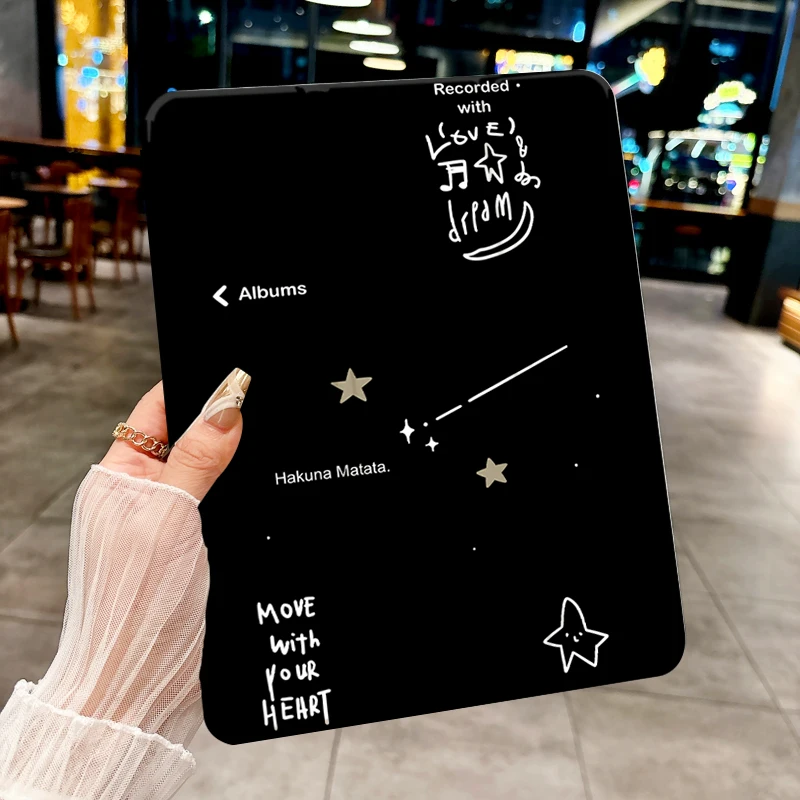 Recorded
with
LOVE
dream
Albums
Hakuna Matata.
MOVE
with
YOUR
HEART